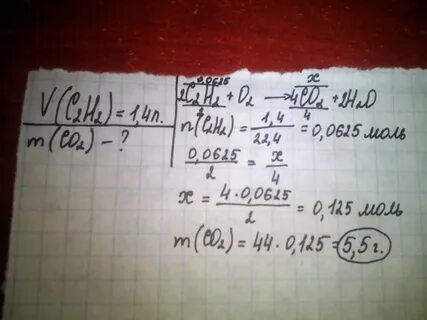 V(C₂H₂)=1,4л.
m(CO₂) – ?
0,0625 x
2C₂H₂ + O₂ → 4CO₂ + 2H₂O
4
n(C₂H₂) = 1,4/22,4 = 0,0625 моль
0,0625/2 = x/4
x = 4·0,0625/2 = 0,125 моль
m(CO₂) = 44·0,125 = 5,5г.